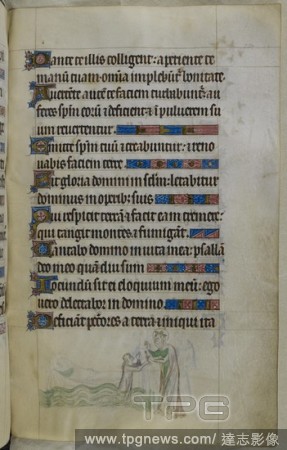 Dante te illis colligent: aperiente te
manū tuam omīa implebūt̃ bonitate.
Auertente autē te faciem turbabunt̃: au
feres spm̄ eorū ⁊ deficient: ⁊ in puluerem su
um reuertentur.
Emitte spm̄ tuū ⁊ creabuntur: ⁊ reno
uabis faciem terre.
Sit gloria domini in sclm̄: letabitur
dominus in operib; suis
Qui respicit terrā ⁊ facit eam tremere:
qui tangit montes ⁊ fumigant.
Cantabo domino in uita mea: psallā
deo meo quādiu sum
Iocundū sit ei eloquium meū: ego
uero delectabor in domino
Deficiant p̄ctores a terra ⁊ iniqui ita
TPG
www.tpgnews.com/達志影像